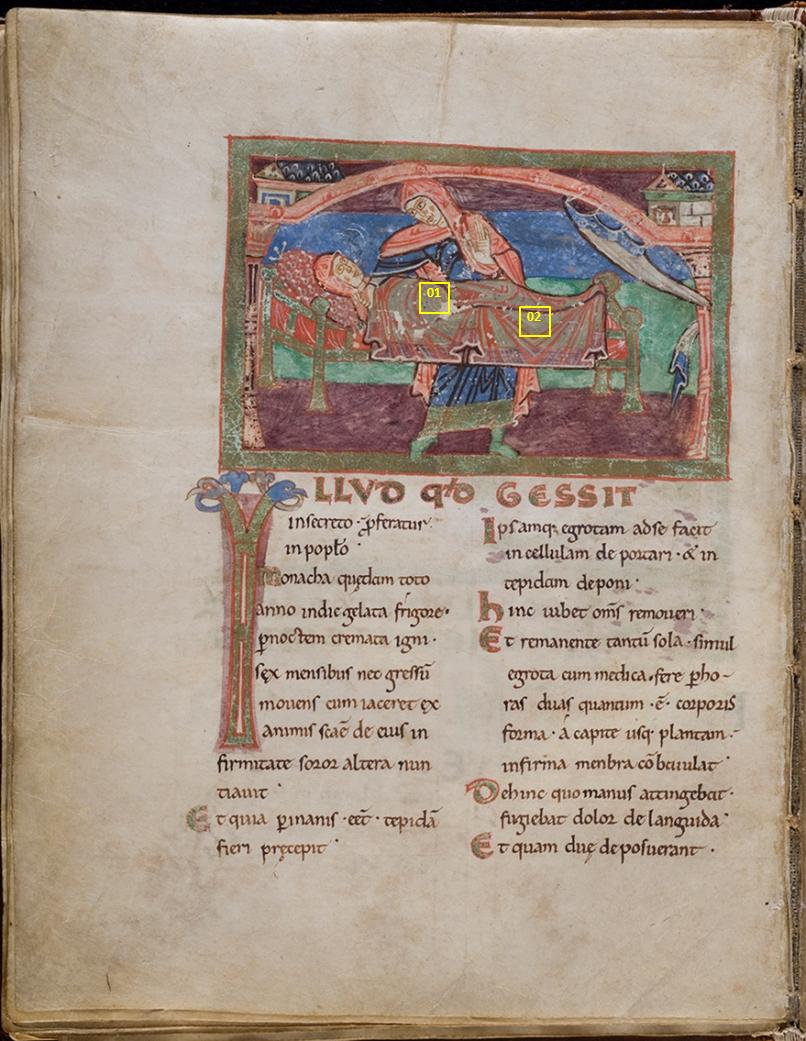 01
02
ILLVD qđ GESSIT
in secreto · pferatur ·
in poplo ·
Monacha quędam toto
anno indie gelata frigore ·
pnoctem cremata igni ·
sex mensibus nec gressū
mouens cum iaceret ex
animis scāe de eius in
firmitate soror altera nun
tiauit ·
Et quia pinanis · eēt · tepidā
fieri pręcepit ·
Ipsamq; egrotam ad se facit
in cellulam de portari · & in
tepidam deponi ·
hinc iubet om̄s remoueri ·
Et remanente tantū sola · simul
egrota cum medica · fere pho
ras duas quantum · ē · corporis
forma · á capite usq; plantam ·
infirma menbra
Dehinc quo manus attingebat ·
fugiebat dolor de languida ·
Et quam duę deposuerant ·